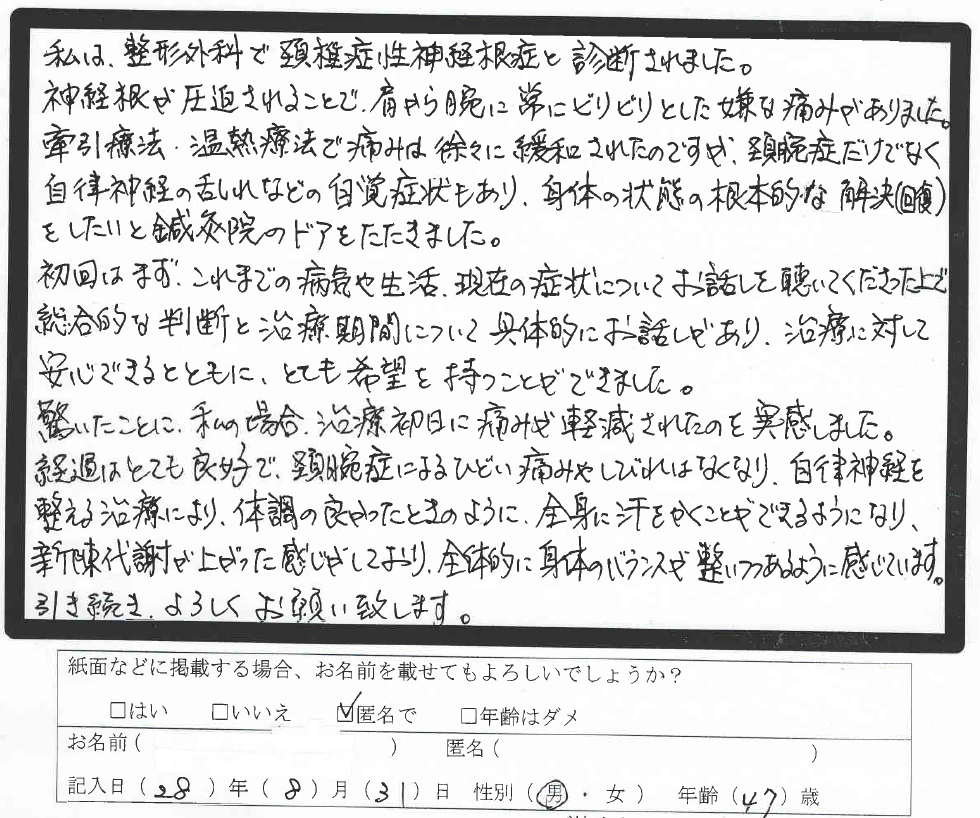 私は、整形外科で頚椎症性神経根症と診断されました。
神経根が圧迫されることで、肩から腕に常にビリビリとした嫌な痛みがありました。
牽引療法・温熱療法で痛みは徐々に緩和されたのですが、頚腕症だけでなく
自律神経の乱れなどの自覚症状もあり、身体の状態の根本的な解決(回復)
をしたいと鍼灸院のドアをたたきました。
初回はまず、これまでの病気や生活、現在の症状についてお話しを聴いてくださった上で
総合的な判断と治療期間について具体的にお話しがあり、治療に対して
安心できるとともに、とても希望を持つことができました。
驚いたことに、私の場合、治療初日に痛みが軽減されたのを実感しました。
経過はとても良好で、頚腕症によるひどい痛みやしびれはなくなり、自律神経を
整える治療により、体調の良かったときのように、全身に汗をかくことができるようになり、
新陳代謝が上がった感じがしており、全体的に身体のバランスが整いつつあるように感じています。
引き続き、よろしくお願い致します。
紙面などに掲載する場合、お名前を載せてもよろしいでしょうか？
□はい □いいえ ☑匿名で □年齢はダメ
お名前( ) 匿名( )
記入日(28)年(8)月(31)日 性別(男・女) 年齢(47)歳